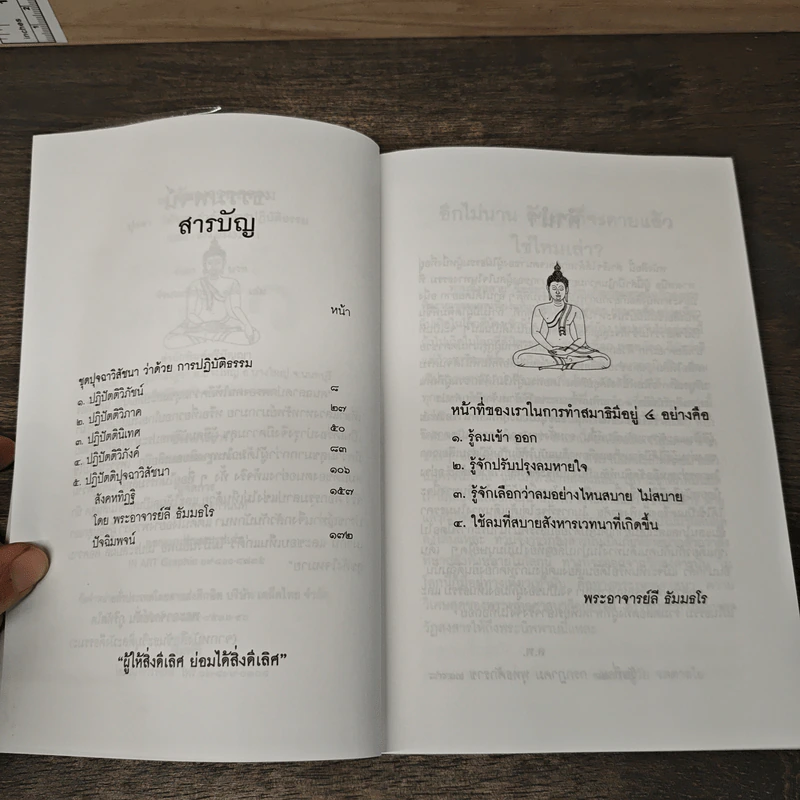 inches
สารบัญ
หน้า
ชุดปุจฉาวิสัชนา ว่าด้วย การปฏิบัติธรรม
๑. ปฏิปัตติวิภัชน์ ๘
๒. ปฏิปัตติวิภาค ๒๗
๓. ปฏิปัตตินิเทศ ๕๐
๔. ปฏิปัตติวิภังค์ ๘๓
๕. ปฏิปัตติปุจฉาวิสัชนา ๑๐๖
สังคหทิฏฐิ ๑๕๗
โดย พระอาจารย์ลี ธัมมธโร
ปัจฉิมพจน์ ๑๗๒
“ผู้ให้สิ่งดีเลิศ ย่อมได้สิ่งดีเลิศ”
หน้าที่ของเราในการทำสมาธิมีอยู่ ๔ อย่างคือ
๑. รู้ลมเข้า ออก
๒. รู้จักปรับปรุงลมหายใจ
๓. รู้จักเลือกว่าลมอย่างไหนสบาย ไม่สบาย
๔. ใช้ลมที่สบายสังหารเวทนาที่เกิดขึ้น
พระอาจารย์ลี ธัมมธโร